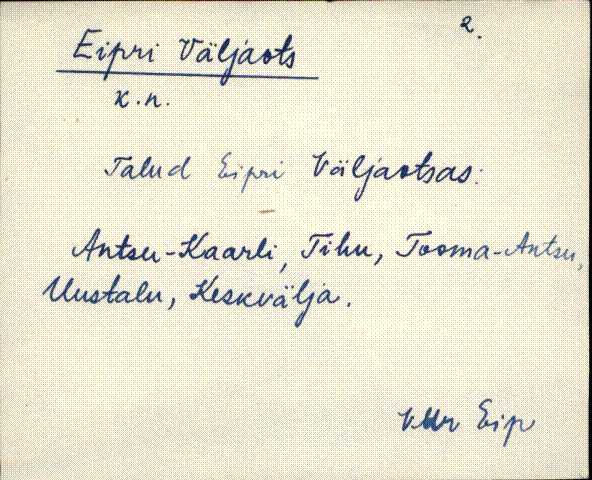 2.
Eipri Väljaots
k.n.
Talud Eipri Väljaotsas:
Antsu-Kaarli, Tihu, Tooma-Antsu,
Uustalu, Keskvälja.
VMr Eip